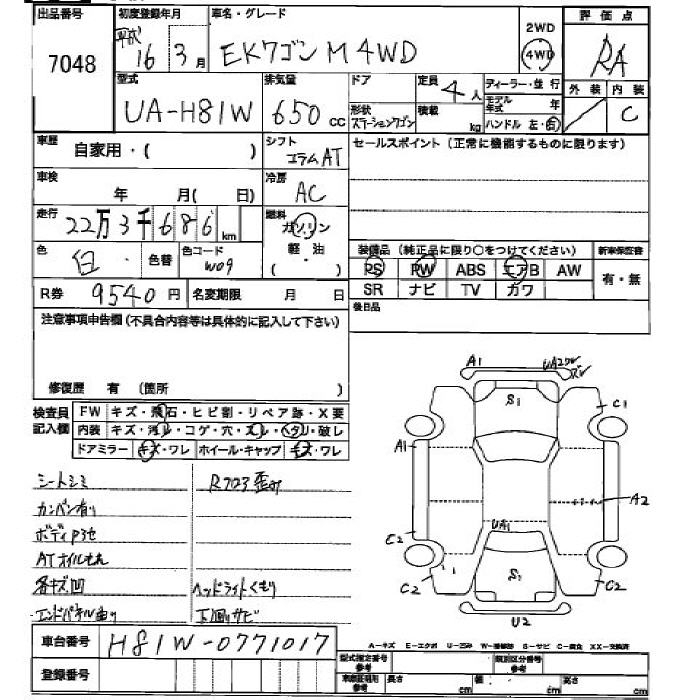 出品番号
7048
初度登録年月
平成
16 3 月
車名・グレード
EKワゴン M 4WD
2WD
4WD
評価点
RA
外装 内装
C
型式
UA-H81W
排気量
650 cc
ドア
形状
ステーションワゴン
定員 4 人
積載 kg
ディーラー・並行
モデル年式 年
ハンドル 左・右
車歴
自家用・( )
シフト
コラムAT
セールスポイント(正常に機能するものに限ります)
車検
年 月( 日)
冷房
AC
走行
22万3千686 km
燃料
ガソリン
軽・油
( ・ )
色
白
色替
色コード
W09
装備品(純正品に限り○をつけてください)
新車保証書
PS PW ABS エアB AW
有・無
SR ナビ TV カワ
R券 9540 円
名変期限 月 日
後日品
注意事項申告欄(不具合内容等は具体的に記入して下さい)
修復歴 有 (箇所 )
検査員記入欄
FW キズ・飛石・ヒビ割・リペア跡・X要
内装 キズ・汚レ・コゲ・穴・スレ・ヘタリ・破レ
ドアミラー キズ・ワレ ホイール・キャップ キズ・ワレ
シートシミ
R703歪み
カンバン有り
ボディP3セ
ATオイルもれ
各キズ凹
ヘッドライトくもり
エンドパネル曲り
下廻りサビ
A1
S1
C1
A1
A2
C2
UA1
S1
C2
C2
U2
車台番号
H81W-0771017
登録番号
A-キズ E-エクボ U-凹み W-補修跡 S-サビ C-腐食 XX-交換済
型式指定番号 参考
類別区分番号 参考
長さ cm
幅 cm
高さ cm